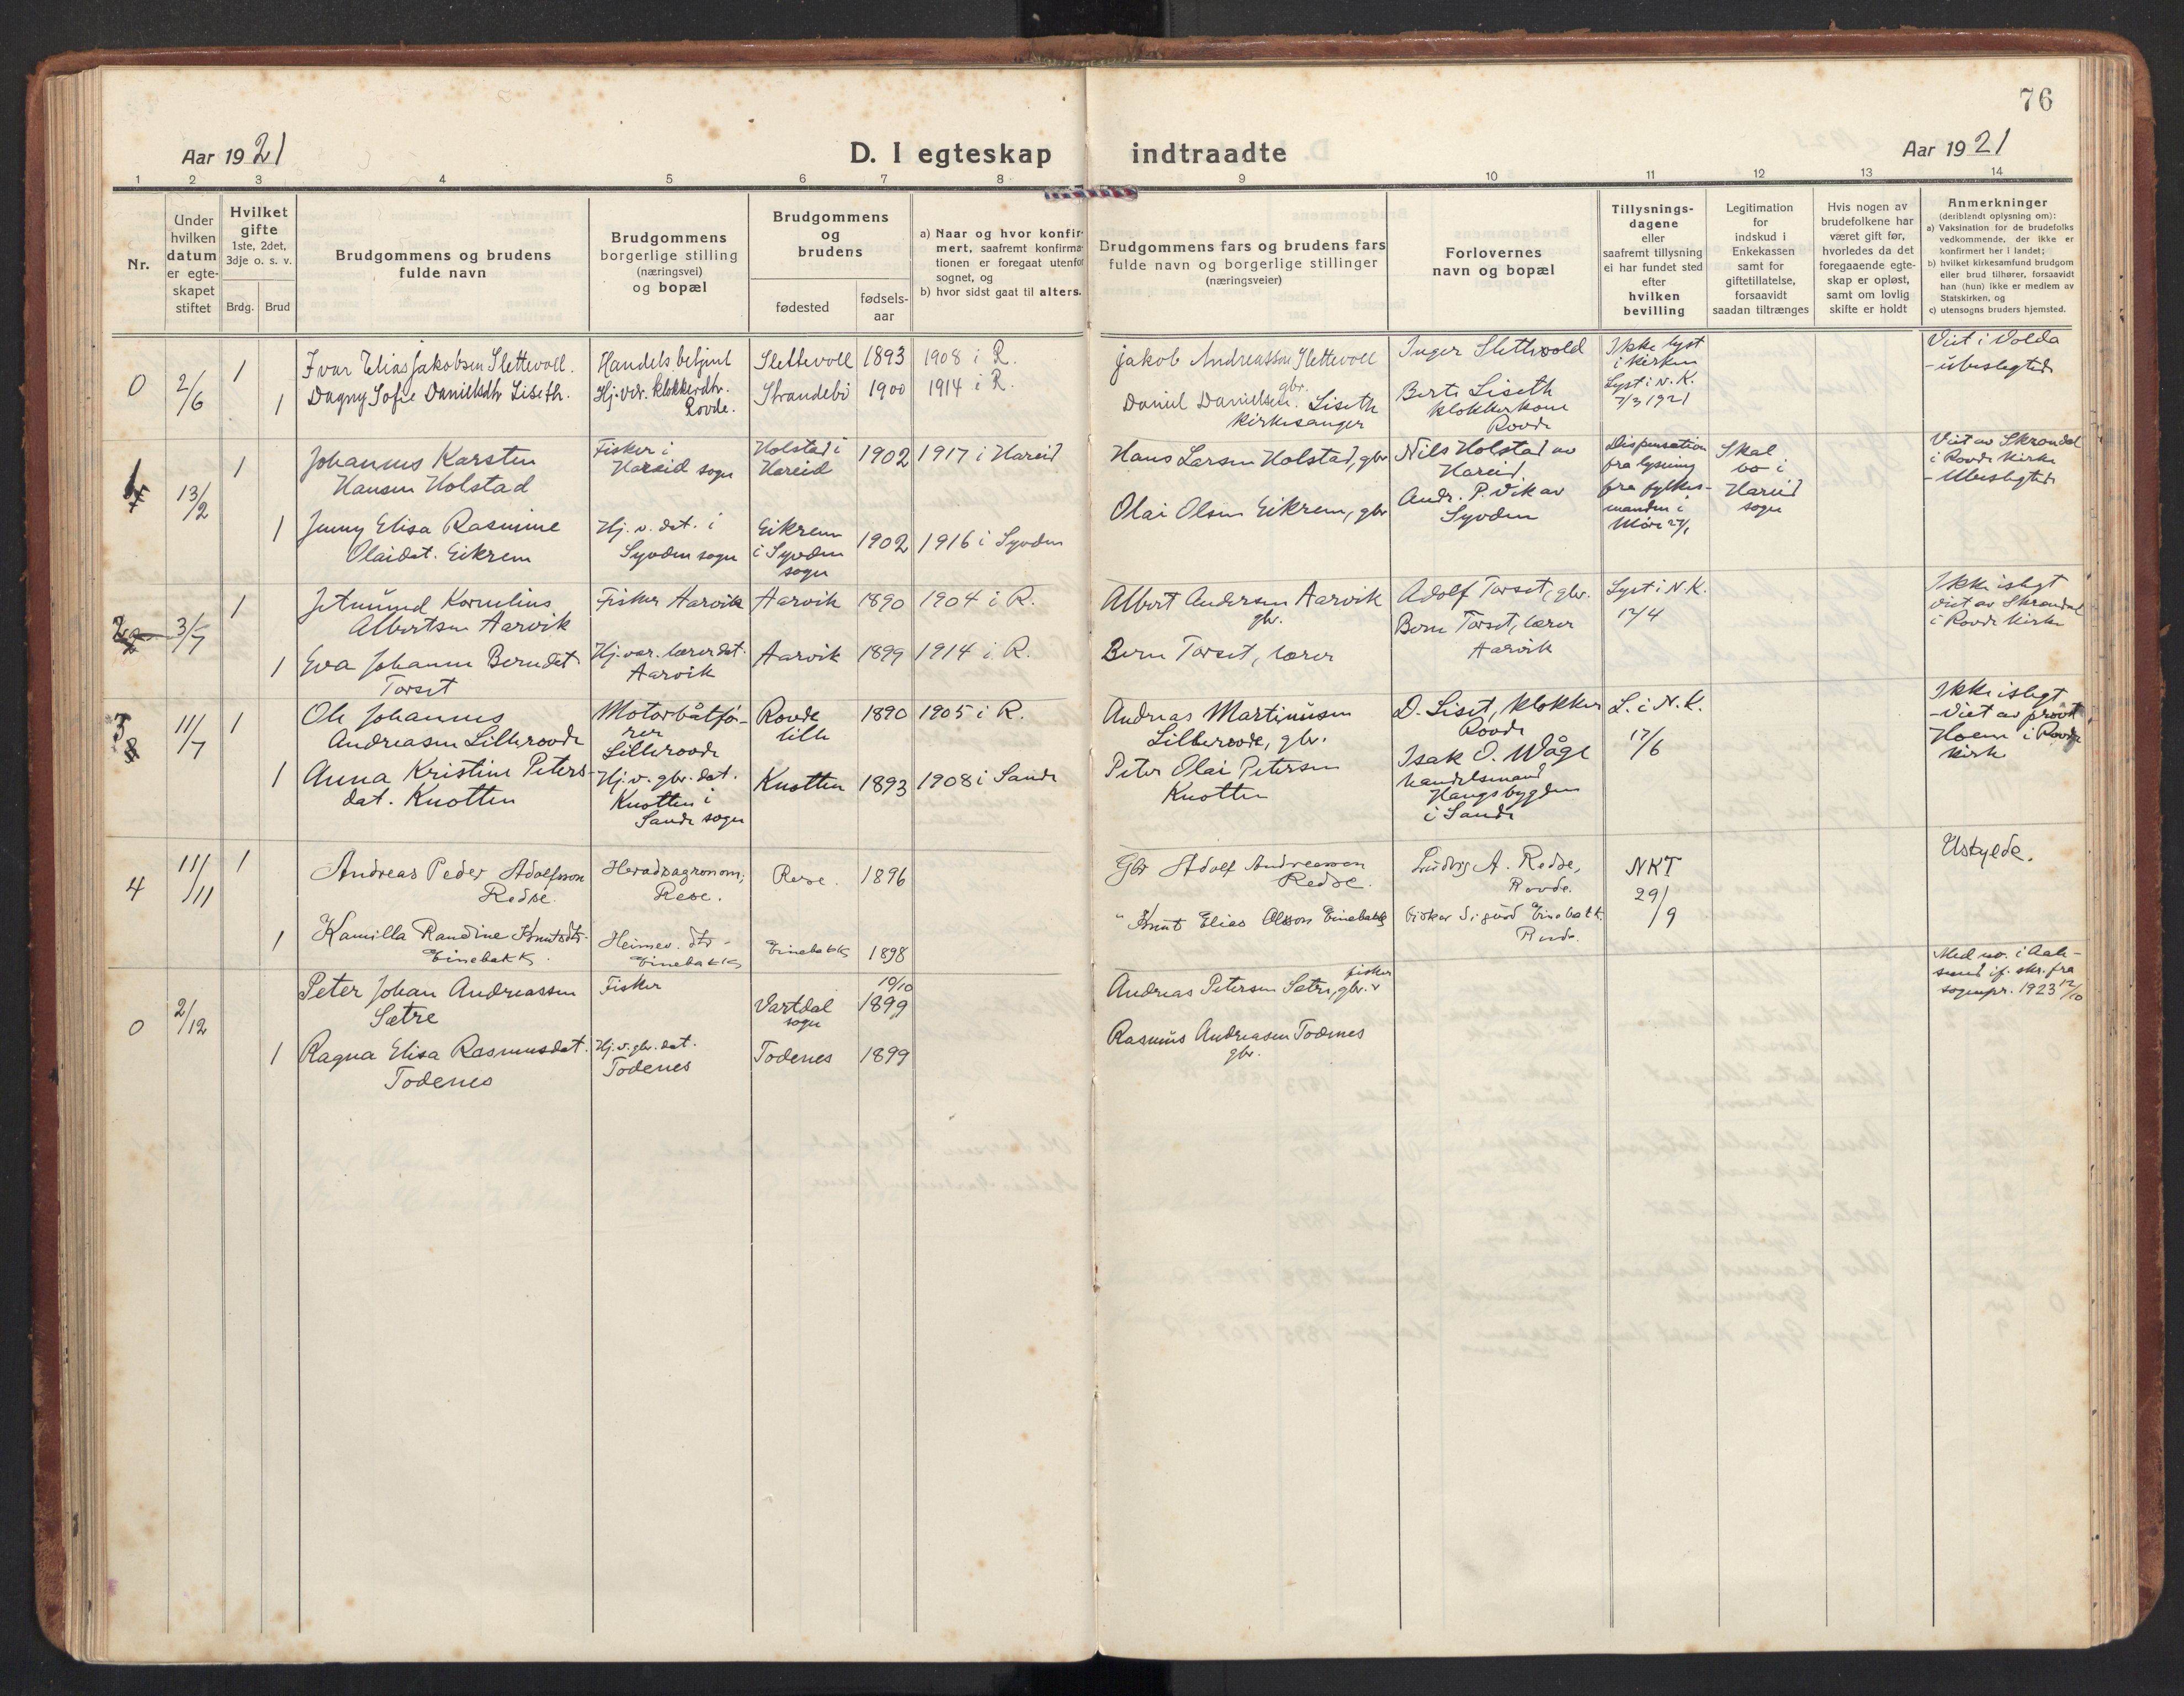 76
Aar 1921
D. I egteskap
indtraadte
Aar 1921
1 2 3 4 5 6 7 8 9 10 11 12 13 14
Nr.
Under
hvilken
datum
er egte-
skapet
stiftet
Hvilket
gifte
1ste, 2det,
3dje o. s. v.
Brdg. Brud
Brudgommens og brudens
fulde navn
Brudgommens
borgerlige stilling
(næringsvei)
og bopæl
Brudgommens
og
brudens
fødested
fødsels-
aar
a) Naar og hvor konfir-
mert, saafremt konfirma-
tionen er foregaat utenfor
sognet, og
b) hvor sidst gaat til alters.
Brudgommens fars og brudens fars
fulde navn og borgerlige stillinger
(næringsveier)
Forlovernes
navn og bopæl
Tillysnings-
dagene
eller
saafremt tillysning
ei har fundet sted
efter
hvilken
bevilling
Legitimation
for
indskud i
Enkekassen
samt for
giftetillatelse,
forsaavidt
saadan tiltrænges
Hvis nogen av
brudefolkene har
været gift før,
hvorledes da det
foregaaende egte-
skap er opløst,
samt om lovlig
skifte er holdt
Anmerkninger
(deriblandt oplysning om):
a) Vaksination for de brudefolks
vedkommende, der ikke er
konfirmert her i landet;
b) hvilket kirkesamfund brudgom
eller brud tilhører, forsaavidt
han (hun) ikke er medlem av
Statskirken, og
c) utensogns bruders hjemsted.
0
2/6
1
Ivar Elias Jakobsen Slettevoll.
Handelsbetjent
Slettevoll
1893
1908 i R.
Jakob Andreassen Slettevoll
gbr.
Inger Slettvold
Ikke lyst
i kirken
Viet i Volda
- ubeslegted
1
Dagny Sofie Danielsdtr Liseth.
Hj. vær. klokkerdtr.
Rovde.
Strandebø
1900
1914 i R.
Daniel Danielsen Liseth
kirkesanger
Berte Liseth
klokkerkone
Rovde
Lyst i N. K.
7/3 1921
1
13/2
1
Johannes Karsten
Hansen Holstad
Fisker i
Hareid sogn
Holstad i
Hareid
1902
1917 i Hareid
Hans Larsen Holstad, gbr
Nils Holstad av
Hareid
Dispensation
fra lysning
fra fylkes-
manden i
Møre 27/1
Skal
bo i
Hareid
sogn
Viet av Skrondal
i Rovde kirke
- Ubeslegted
1
Jenny Elisa Rasmine
Olaidat. Eikrem
Hj. v. dat. i
Syvden sogn
Eikrem
i Syvden
sogn
1902
1916 i Syvden
Olai Olsen Eikrem, gbr
Andr. P. Vik av
Syvden
2
3/7
1
Jetmund Kornelius
Albertsen Aarvik
Fisker Aarvik
Aarvik
1890
1904 i R.
Albert Andersen Aarvik
gbr.
Adolf Torset, gbr.
Lyst i N. K.
17/4
Ikke islegt
Viet av Skrondal
i Rovde kirke
1
Eva Johanne Berndat
Torset
Hj. vær. lærerdat.
Aarvik
Aarvik
1899
1914 i R.
Bern Torset, lærer
Bern Torset, lærer
Aarvik
3
11/7
1
Ole Johannes
Andreasen Lillerovde
Motorbåtfø-
rer
Lillerovde
Rovde
lille
1890
1905 i R.
Andreas Martinusen
Lillerovde, gbr.
D. Liset, klokker
Rovde
L. i N. K.
17/6
Ikke islegt
- Viet av prost
Hoem i Rovde
kirke
1
Anna Kristine Peters-
dat. Knotten
Hj. v. gbr. dat.
Knotten i
Sande sogn
Knotten
1893
1908 i Sande
Peter Olai Petersen
Knotten
Isak O. Våge
handelsmand
Haugsbygden
i Sande
4
11/11
1
Andreas Peder Adolfsson
Redse.
Heradsagronom,
Rese.
Rese.
1896
Gbr Adolf Andreassen
Redse.
Ludvig A. Redse,
Rovde.
NKT
29/9
Uskylde.
1
Kamilla Randine Knutsdtr
Einebakk.
Heimev. dtr -
Einebakk
Einebakk
1898
" Knut Elias Olsson Einebakk
Fisker Sigurd Einebakk
Rovde.
0
2/12
Peter Johan Andreassen
Sætre
Fisker
Vartdal
sogn
10/10
1899
Andreas Petersen Sætre, gbr. v
fisker
Med no. i Aale-
sund if. skr. fra
sognepr. 1923 12/10
1
Ragna Elisa Rasmusdat.
Todenes
Hj. v. gbr. dat.
Todenes
Todenes
1899
Rasmus Andreasen Todenes
gbr.